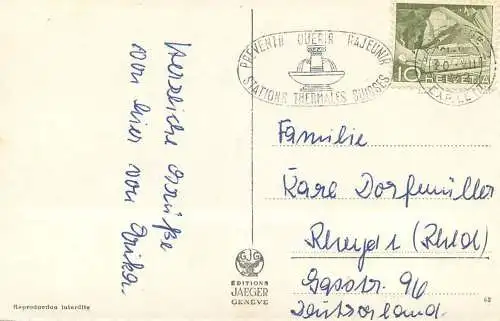 Herzliche Grüße
von hier von Erika.
PREVENIR GUERIR RAJEUNIR
STATIONS THERMALES SUISSES
10
HELVETIA
EXP. LET
Familie
Karl Dorfmüller
Rheydt (Rhld)
Gasstr. 96
Deutschland.
EJG
EDITIONS
JAEGER
GENÈVE
Reproduction interdite